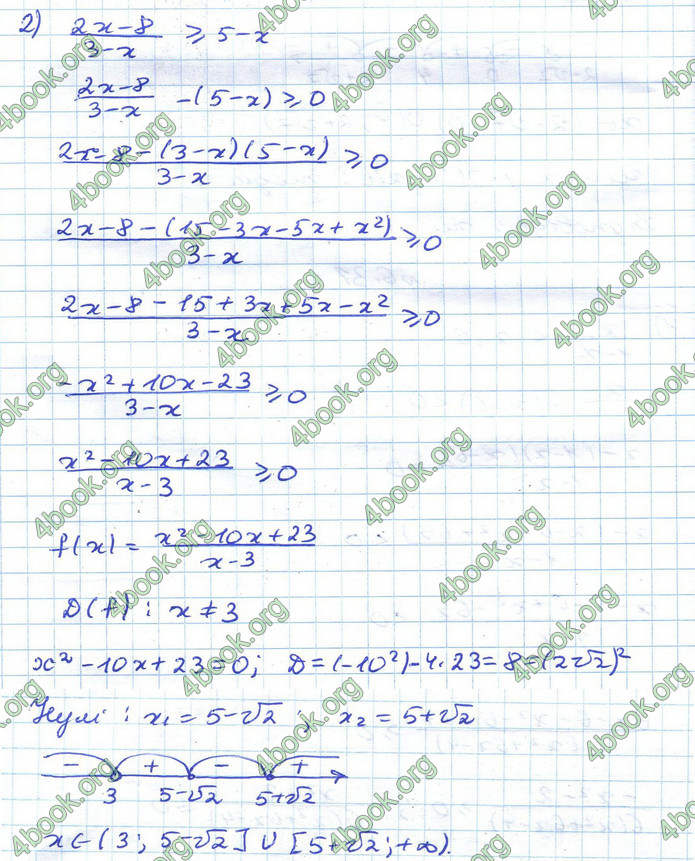 2) (2x-8)/(3-x) ⩾ 5-x
(2x-8)/(3-x) -(5-x) ⩾ 0
(2x-8-(3-x)(5-x))/(3-x) ⩾ 0
(2x-8-(15-3x-5x+x²))/(3-x) ⩾ 0
(2x-8-15+3x+5x-x²)/(3-x) ⩾ 0
(-x²+10x-23)/(3-x) ⩾ 0
(x²-10x+23)/(x-3) ⩾ 0
f(x) = (x²-10x+23)/(x-3)
D(f): x ≠ 3
x²-10x+23=0; D=(-10²)-4·23=8=(2√2)²
Нулі: x₁=5-√2; x₂=5+√2
- + - +
3 5-√2 5+√2
x∈(3; 5-√2] ∪ [5+√2; +∞).
4book.org